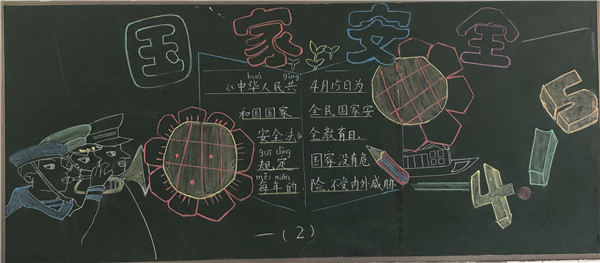 国家安全
huá gòng
《中华人民共
和国国家
安全法》
guī dìng
规定
měi nián
每年的
4月15日为
全民国家安
全教育日.
国家没有危
险、不受内外威胁
4.15
一(2)